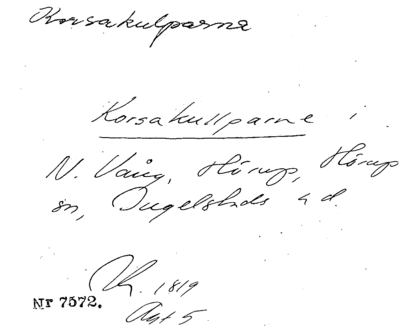 Korsakulparne
Korsakullparne i
N. Vång, Hörup, Hörup
sn, Ingelstads hd.
1819
Nr 7572. Akt 5